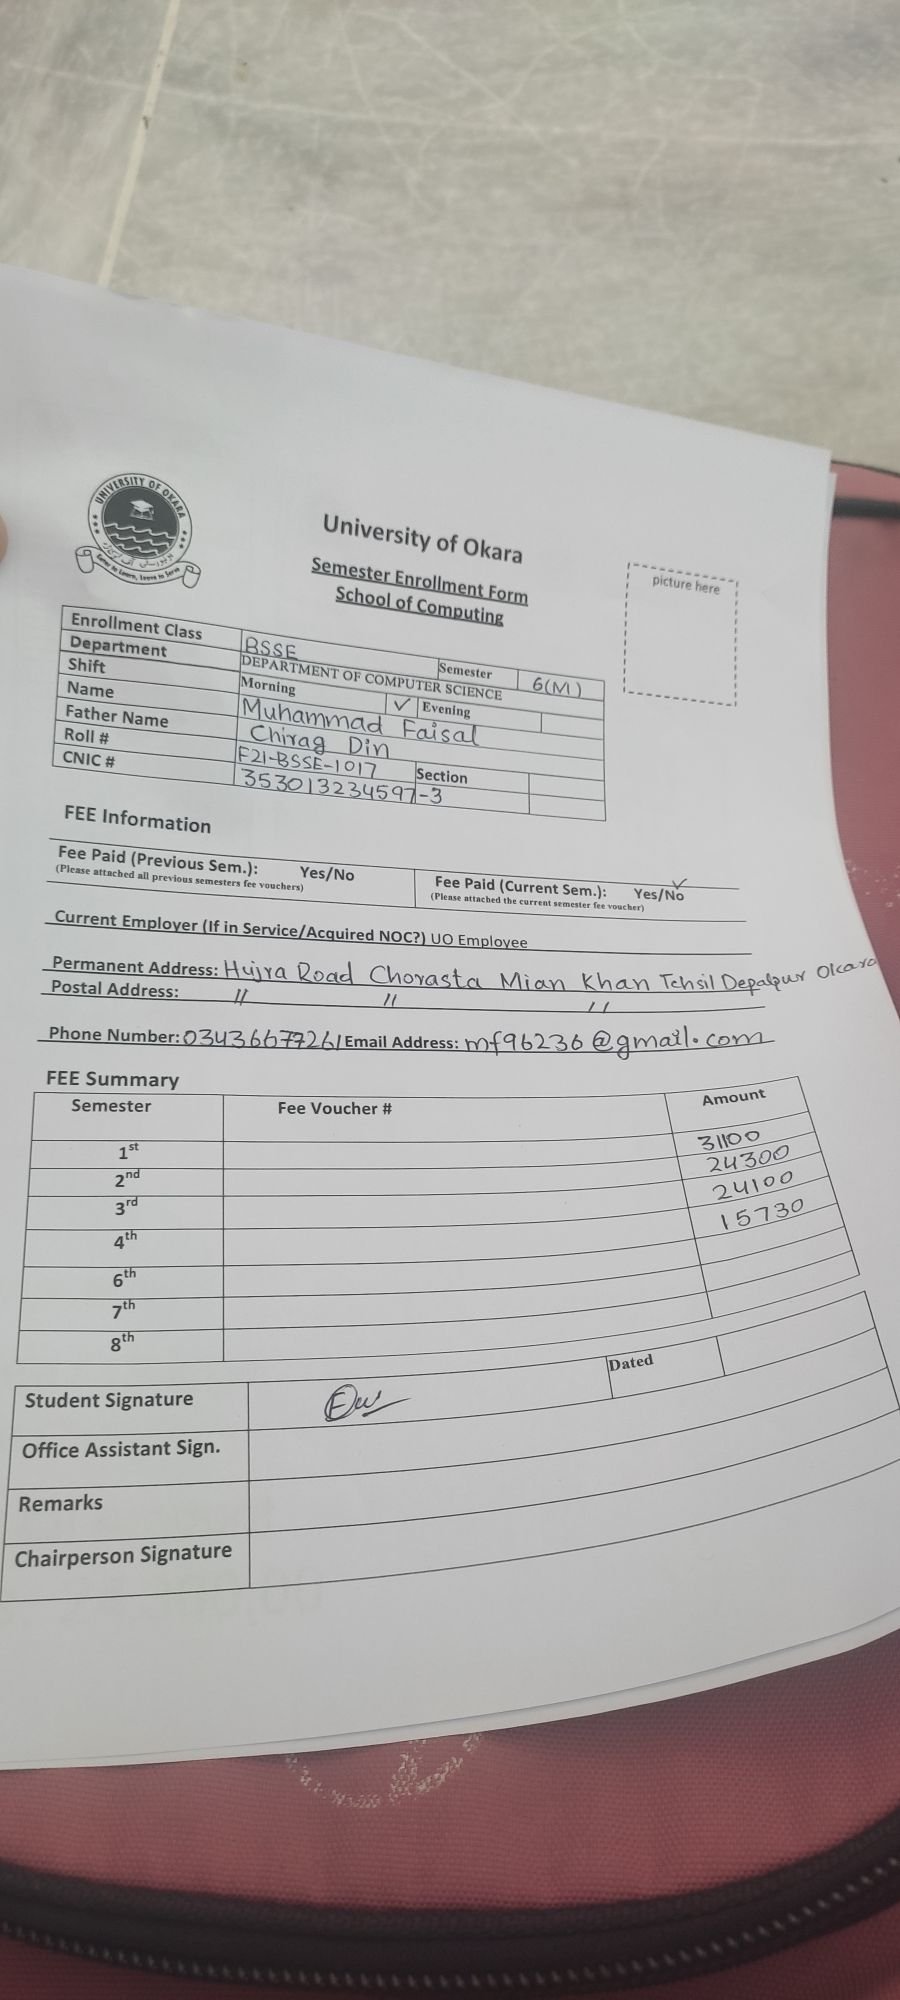 UNIVERSITY OF OKARA
Enter to Learn, Leave to Serve
University of Okara
Semester Enrollment Form
School of Computing
picture here
Enrollment Class BSSE Semester 6(M)
Department DEPARTMENT OF COMPUTER SCIENCE
Shift Morning ✓ Evening
Name Muhammad Faisal
Father Name Chirag Din
Roll # F21-BSSE-1017 Section
CNIC # 353013234597-3
FEE Information
Fee Paid (Previous Sem.): Yes/No Fee Paid (Current Sem.): Yes/No ✓
(Please attached all previous semesters fee vouchers) (Please attached the current semester fee voucher)
Current Employer (If in Service/Acquired NOC?) UO Employee
Permanent Address: Hujra Road Chorasta Mian Khan Tehsil Depalpur Okara
Postal Address: // // //
Phone Number: 03436677261 Email Address: mf96236@gmail.com
FEE Summary
Semester Fee Voucher # Amount
1st 31100
2nd 24300
3rd 24100
4th 15730
6th
7th
8th
Student Signature Dated
Office Assistant Sign.
Remarks
Chairperson Signature